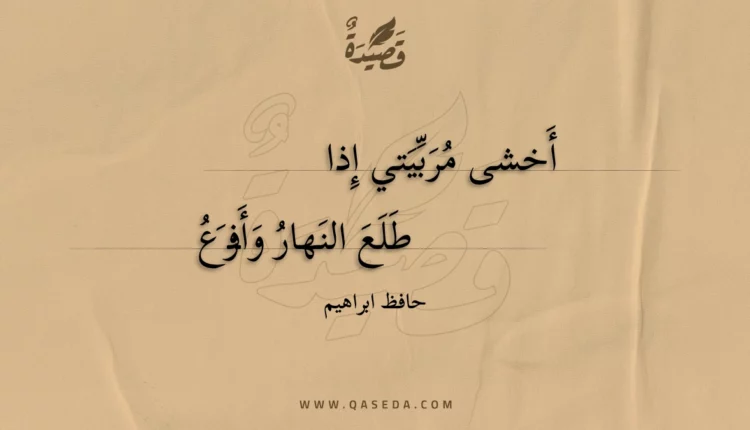 قَصِيدَةٌ
أَخشى مُرَبِّيَتي إِذا
طَلَعَ النَهارُ وَأَفزَعُ
حافظ ابراهيم
WWW.QASEDA.COM